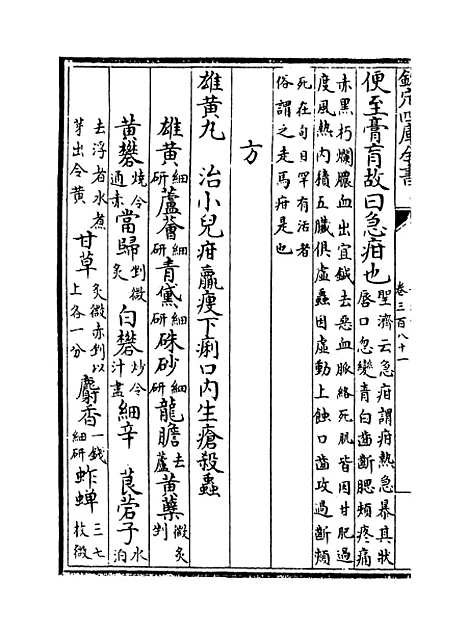 欽定四庫全書
卷三百八十一
便至膏肓故曰急疳也
聖濟云急疳謂疳熱急暴其狀
唇口忽變青白齒斷腮頰疼痛
赤黑朽爛膿血出宜鍼去惡血脈絡死肌皆因甘肥過
度風熱內積五臟俱虛蟲因虛動上蝕口齒攻過斷頰
死在旬日罕有治者
俗謂之走馬疳是也
方
雄黃丸 治小兒疳羸瘦下痢口內生瘡殺蟲
雄黃細研蘆薈細研青黛細研硃砂細研龍膽去蘆黃蘗微炙剉
黃礬燒令通赤當歸剉微炙白礬炒令汁盡細辛 莨菪子水泊
去浮者水煮芽出令黃 甘草炙微赤剉以上各一分 麝香一錢細研蚱蟬三七枚微